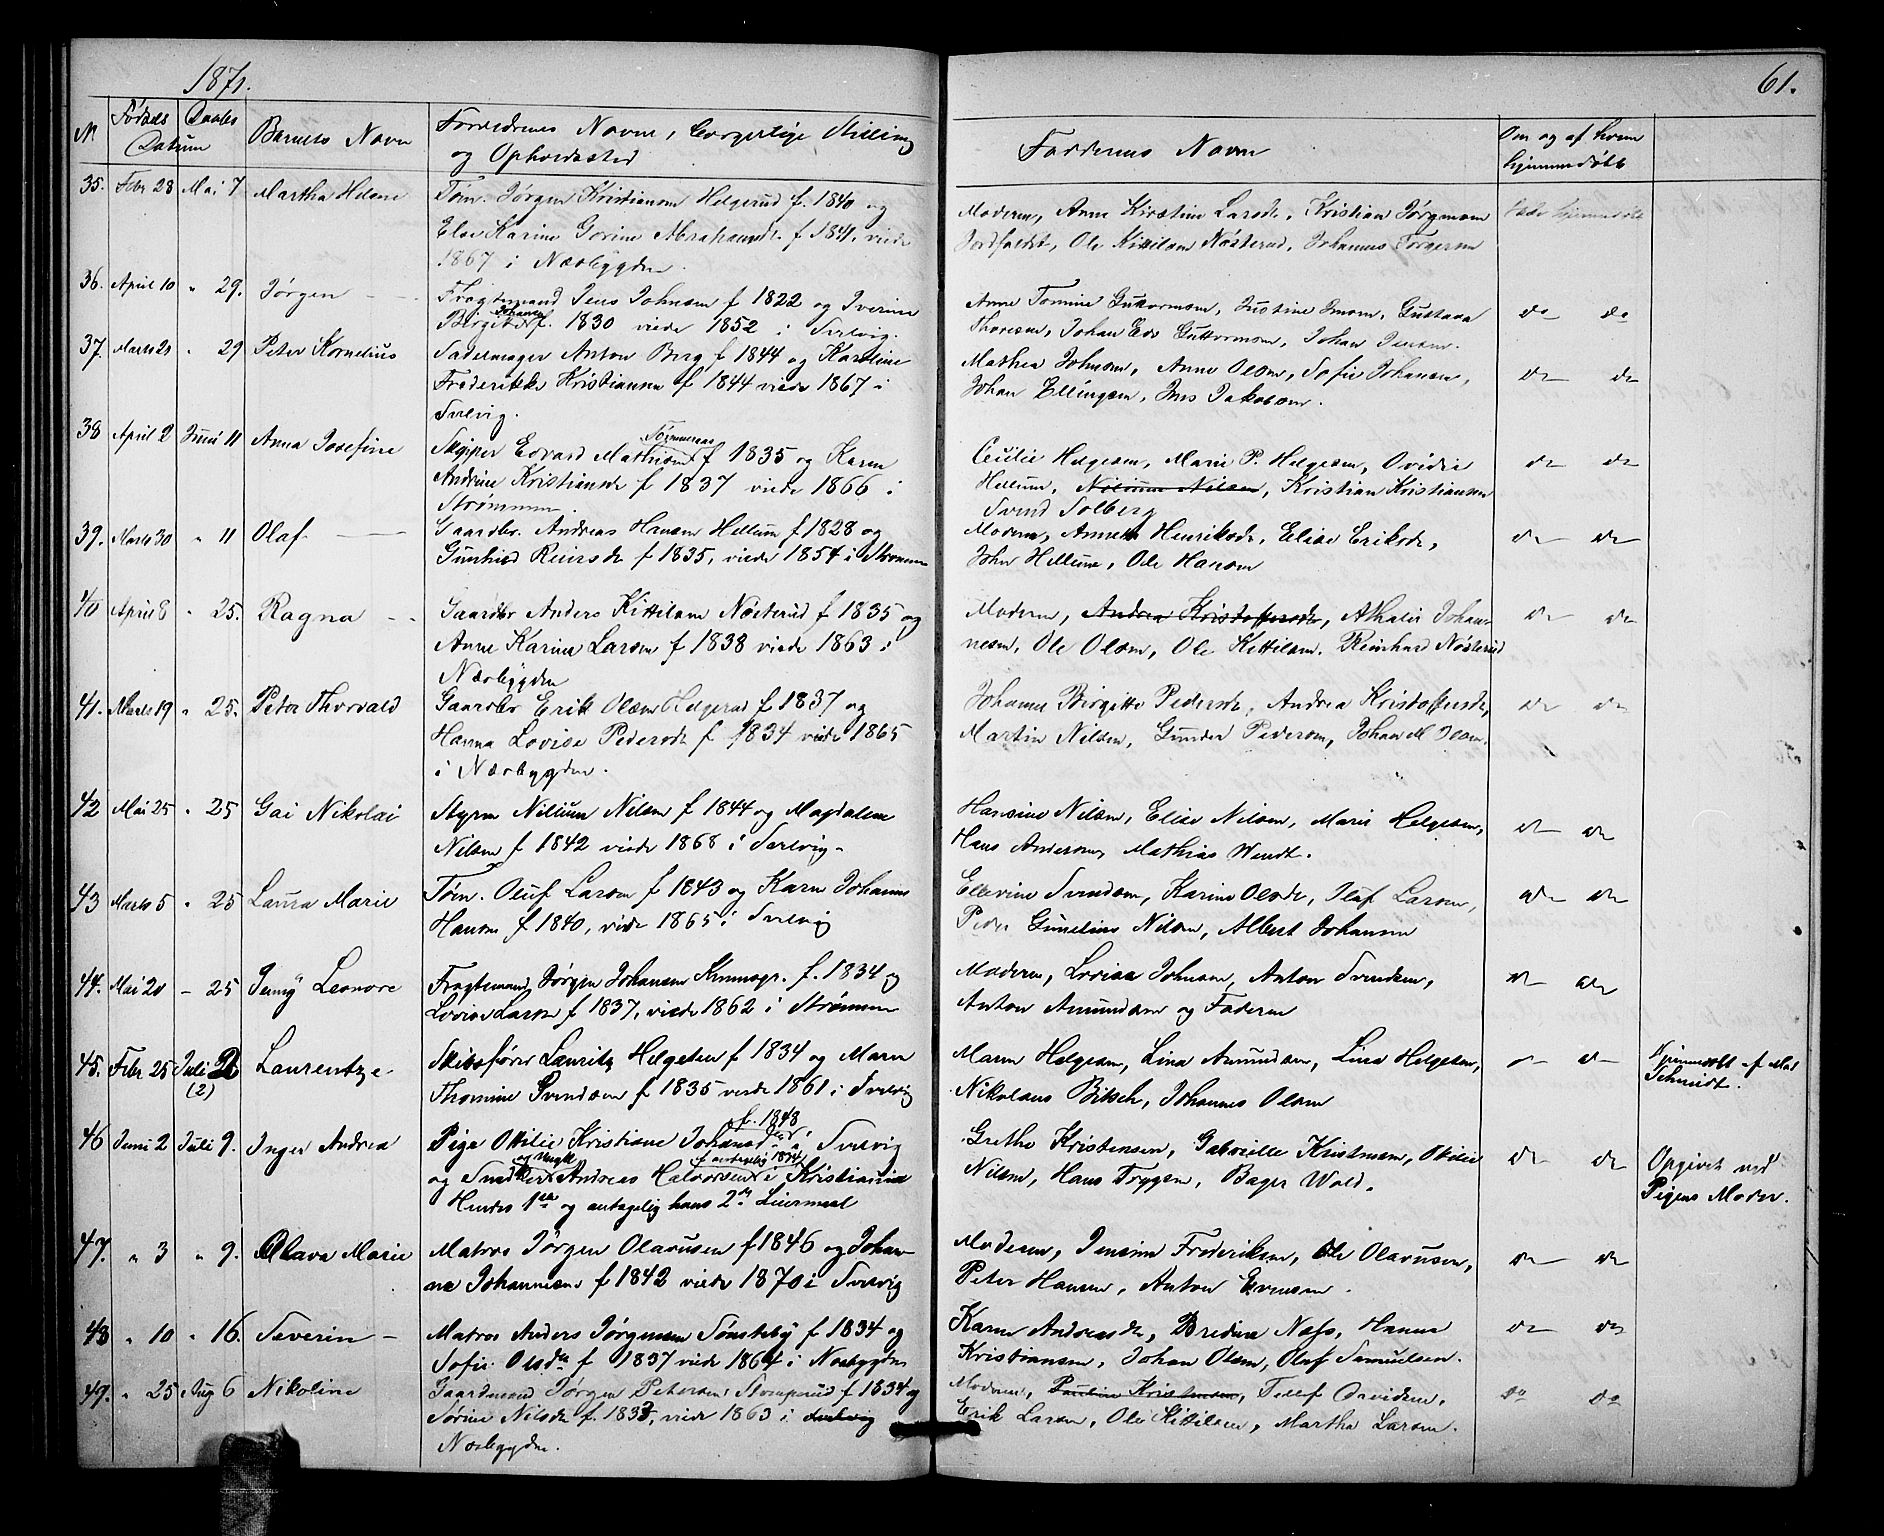 1871.
61.
N. Fødsels Daabs Datum Barnets Navn Forældrenes Navne, borgerlige Stilling
og Opholdssted
Faddernes Navne
Om og af hvem
hjemmedøbt
35. Febr 28 Mai 7 Martha Helene Tøm. Jørgen Kristiansen Helgerud f. 1840 og
Else Karine Gorine Abrahamsdr f 1841, viede
1867 i Næsbygden.
Moderen, Anne Kirstine Larsdr, Kristian Jørgensen
Jordfaldet, Ole Kittilsen Nøsterud, Johannes Torgersen
ikke hjemmedøbt
36. April 10 " 29. Jørgen Fragtemand Jens Johnsen f 1822 og Iverine
Birgitte Johanne f. 1830 viede 1852 i Svelvig.
Anne Tomine Guttormsen, Justine Imsen, Gustava
Thoresen, Johan Edv Guttormsen, Johan Jensen.
do do
37. Marts 21 " 29 Peter Kornelius Sadelmager Anton Berg f 1844 og Karoline
Frederikke Kristiansen f 1844 viede 1867 i
Svelvig.
Mathea Johnsen, Anne Olsen, Sofie Johansen,
Johan Ellingsen, Jens Jakobsen.
do do
38 April 2 Juni 11 Anna Josefine Skipper Edvard Mathisen Tømmeraas f 1835 og Karen
Andrine Kristiansdr f 1837 viede 1866 i
Strømmen.
Cecilie Helgesen, Marie P. Helgesen, Ovidia
Hellum, Nilium Nilsen, Kristian Kristiansen
Svend Solberg
do do
39. Marts 30 " 11 Olaf Gaardbr. Andreas Hansen Hellum f 1828 og
Gunhild Reiersdr f 1835, viede 1854 i Strømmen
Moderen, Anne Henriksdr, Elise Eriksdr,
John Hellum, Ole Hansen
do do
40 April 8 " 25. Ragna Gaardbr Anders Kittilsen Nøsterud f 1835 og
Anne Karine Larsen f 1838 viede 1863 i
Næsbygden
Moderen, Andrea Kristoffersdr, Athalie Johan-
nesen, Ole Olsen, Ole Kittilsen. Reinhard Nøsterud
do do
41. Marts 19 " 25. Peter Thorvald Gaardbr Erik Olsen Helgerud f 1837 og
Hanna Lovise Pedersdr f 1834 viede 1865
i Næsbygden.
Johanne Birgitte Pedersdr, Andrea Kristoffersdr,
Martin Nilsen, Gunder Pedersen, Johan M Olsen.
do do
42 Mai 25 " 25 Gai Nikolai Styrm Nilium Nilsen f 1844 og Magdalene
Nilsen f 1842 viede 1868 i Svelvig.
Hansine Nilsen, Elise Nilsen, Marie Helgesen,
Hans Andersen, Mathias Wendt.
do do
43 Marts 5 " 25 Laura Marie Tøm. Oluf Larsen f 1843 og Karen Johanne
Hansen f 1840, viede 1865 i Svelvig
Ellevine Svendsen, Karine Olsdr, Oluf Larsen,
Peder Gunelius Nilsen, Albert Johansen
do do
44. Mai 20 - 25 Jenny Leonore Fragtemand Jørgen Johansen f. 1834 og
Lovise Larsen f 1837, viede 1862 i Strømmen
Moderen, Lovisa Johnsen, Anton Svendsen,
Anton Amundsen og Faderen
do do
45. Febr 25 Juli 2 (2) Laurentze Skibsfører Lauritz Helgesen f 1834 og Maren
Thomine Svendsen f 1835 viede 1861 i Svelvig
Maren Helgesen, Lina Amundsen, Lina Helgesen,
Nikolaus Bitsch, Johannes Olsen
do do
Hjemmedøbt af Mad
Schmidt.
46 Juni 2 Juli 9. Inger Andrea Pige Ottilie Kristiane Johansdr f. 1848 i Svelvig
og Snedker og Ungk Andreas Halvorsen f antagelig 1834 i Kristiania
Hendes 1ste og antagelig hans 2det Leiermaal
Grethe Kristensen, Gabrielle Kristensen, Ottilie
Nilsen, Hans Trygsen, Bager Wold.
do do
Opgivet ved
Pigens Moder.
47. " 3 " 9. Olava Marie Matros Jørgen Olavusen f 1846 og Johan-
ne Johannesen f 1842 viede 1870 i Svelvig
Moderen, Jensine Frederiksen, Ole Olavusen,
Peter Hansen, Anton Evensen.
do do
48 " 10 " 16. Severin Matros Anders Jørgensen Sønsteby f 1834 og
Sofie Olsdtr f 1837 viede 1864 i Næsbygden
Karen Andreasdr, Bredine Næss, Hanna
Kristiansen, Johan Olsen, Olaf Samuelsen.
do do
49. " 25 Aug 6 Nikoline Gaardmand Jørgen Petersen Stomperud f 1834 og
Sørine Nilsdr f. 1833, viede 1863 i Svelvig
Næsbygden.
Moderen, Pauline Kristensen, Tellef Davidsen,
Erik Larsen, Ole Kittilsen, Martha Larsen.
do do